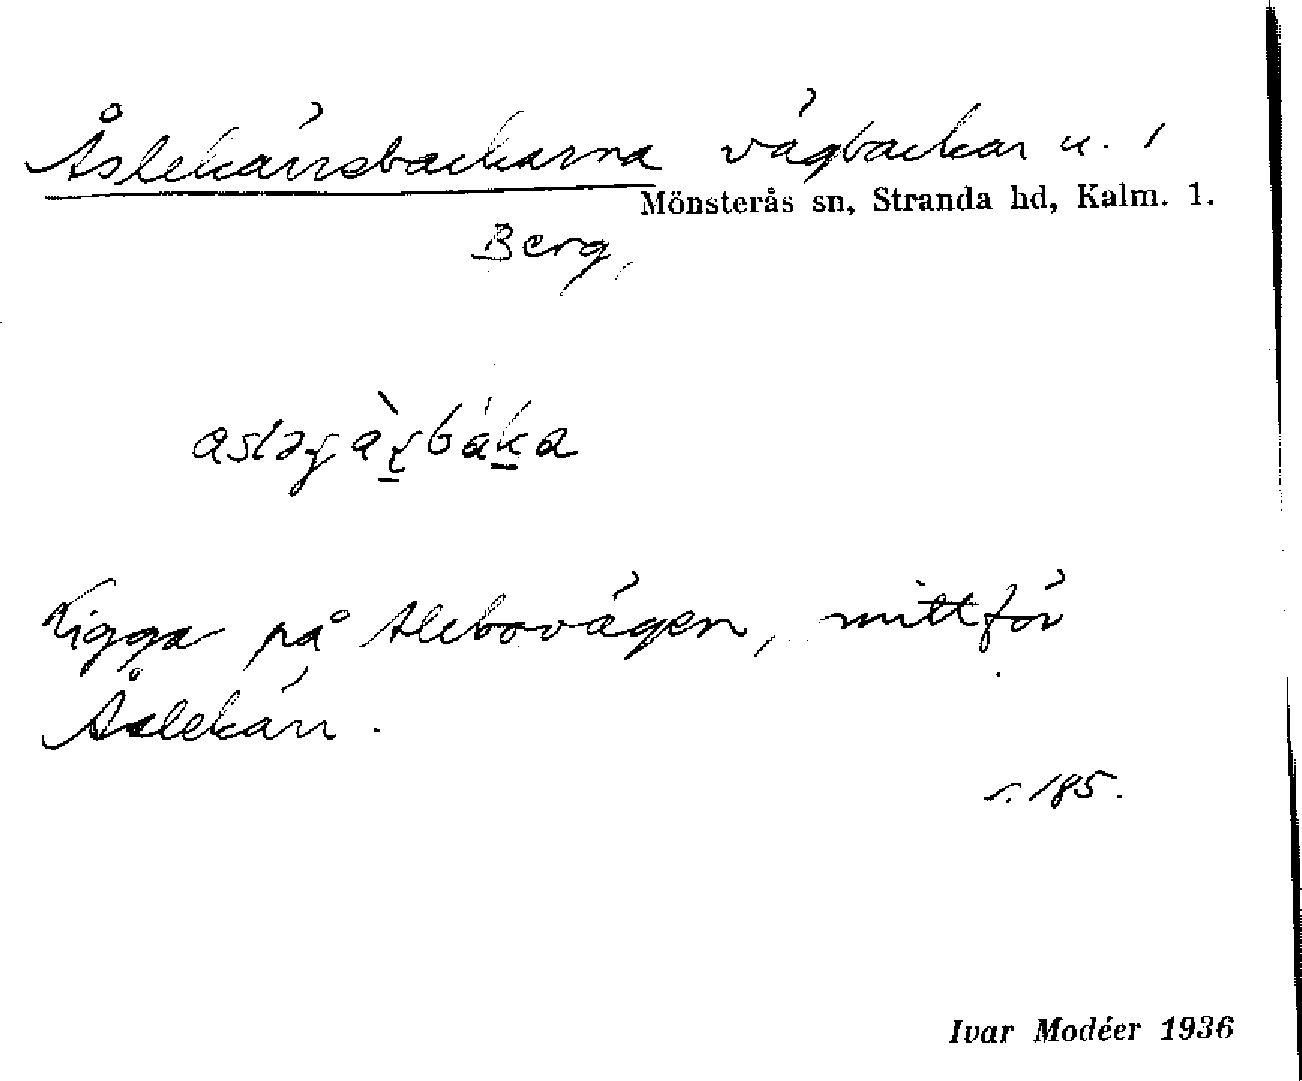 Åslekärrsbackarna vägbackar u. 1
Mönsterås sn, Stranda hd, Kalm. l.
Berg,
Ligga på Alebovägen, mittför
Åslekärr.
s. 185.
Ivar Modéer 1936